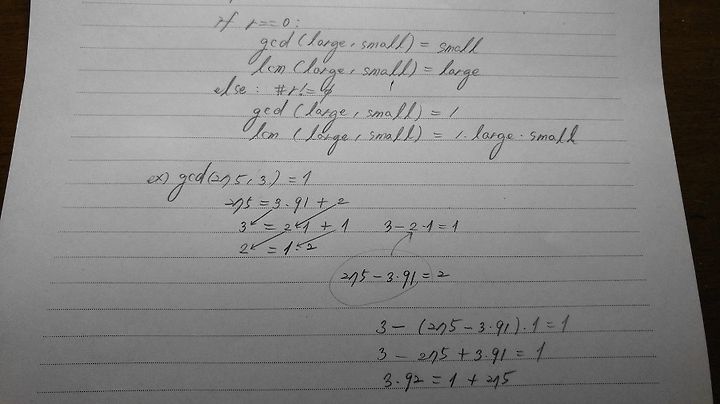 if r==0:
gcd(large, small) = small
lcm(large, small) = large
else: #r!=0
gcd(large, small) = 1
lcm (large, small) = 1·large·small
ex) gcd(275, 3) = 1
275 = 3·91 + 2
3 = 2·1 + 1    3-2·1=1
2 = 1·2
275-3·91=2
3 - (275-3·91)·1=1
3 - 275 + 3·91 = 1
3·92 = 1 + 275